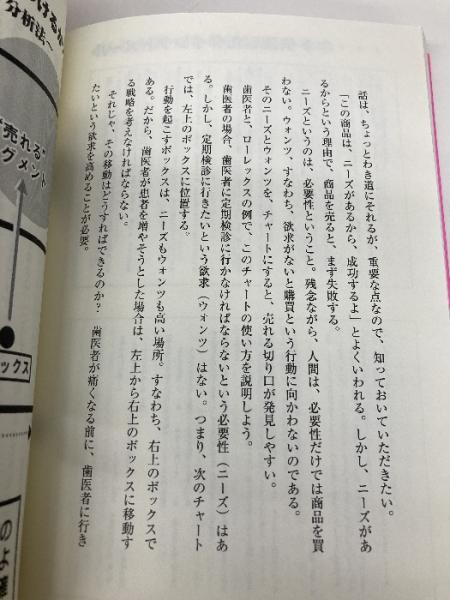 話は、ちょっとわき道にそれるが、重要な点なので、知っておいていただきたい。
「この商品は、ニーズがあるから、成功するよ」とよくいわれる。しかし、ニーズがあ
るからという理由で、商品を売ると、まず失敗する。
ニーズというのは、必要性ということ。残念ながら、人間は、必要性だけでは商品を買
わない。ウォンツ、すなわち、欲求がないと購買という行動に向かわないのである。
そのニーズとウォンツを、チャートにすると、売れる切り口が発見しやすい。
歯医者と、ローレックスの例で、このチャートの使い方を説明しよう。
歯医者の場合、歯医者に定期検診に行かなければならないという必要性（ニーズ）はあ
る。しかし、定期検診に行きたいという欲求（ウォンツ）はない。つまり、次のチャート
では、左上のボックスに位置する。
行動を起こすボックスは、ニーズもウォンツも高い場所。すなわち、右上のボックスで
ある。だから、歯医者が患者を増やそうとした場合は、左上から右上のボックスに移動す
る戦略を考えなければならない。
それじゃ、その移動はどうすればできるのか？　歯医者が痛くなる前に、歯医者に行き
たいという欲求を高めることが必要。
けるか
分析法へ
売れる
グメント
ックス
のよ